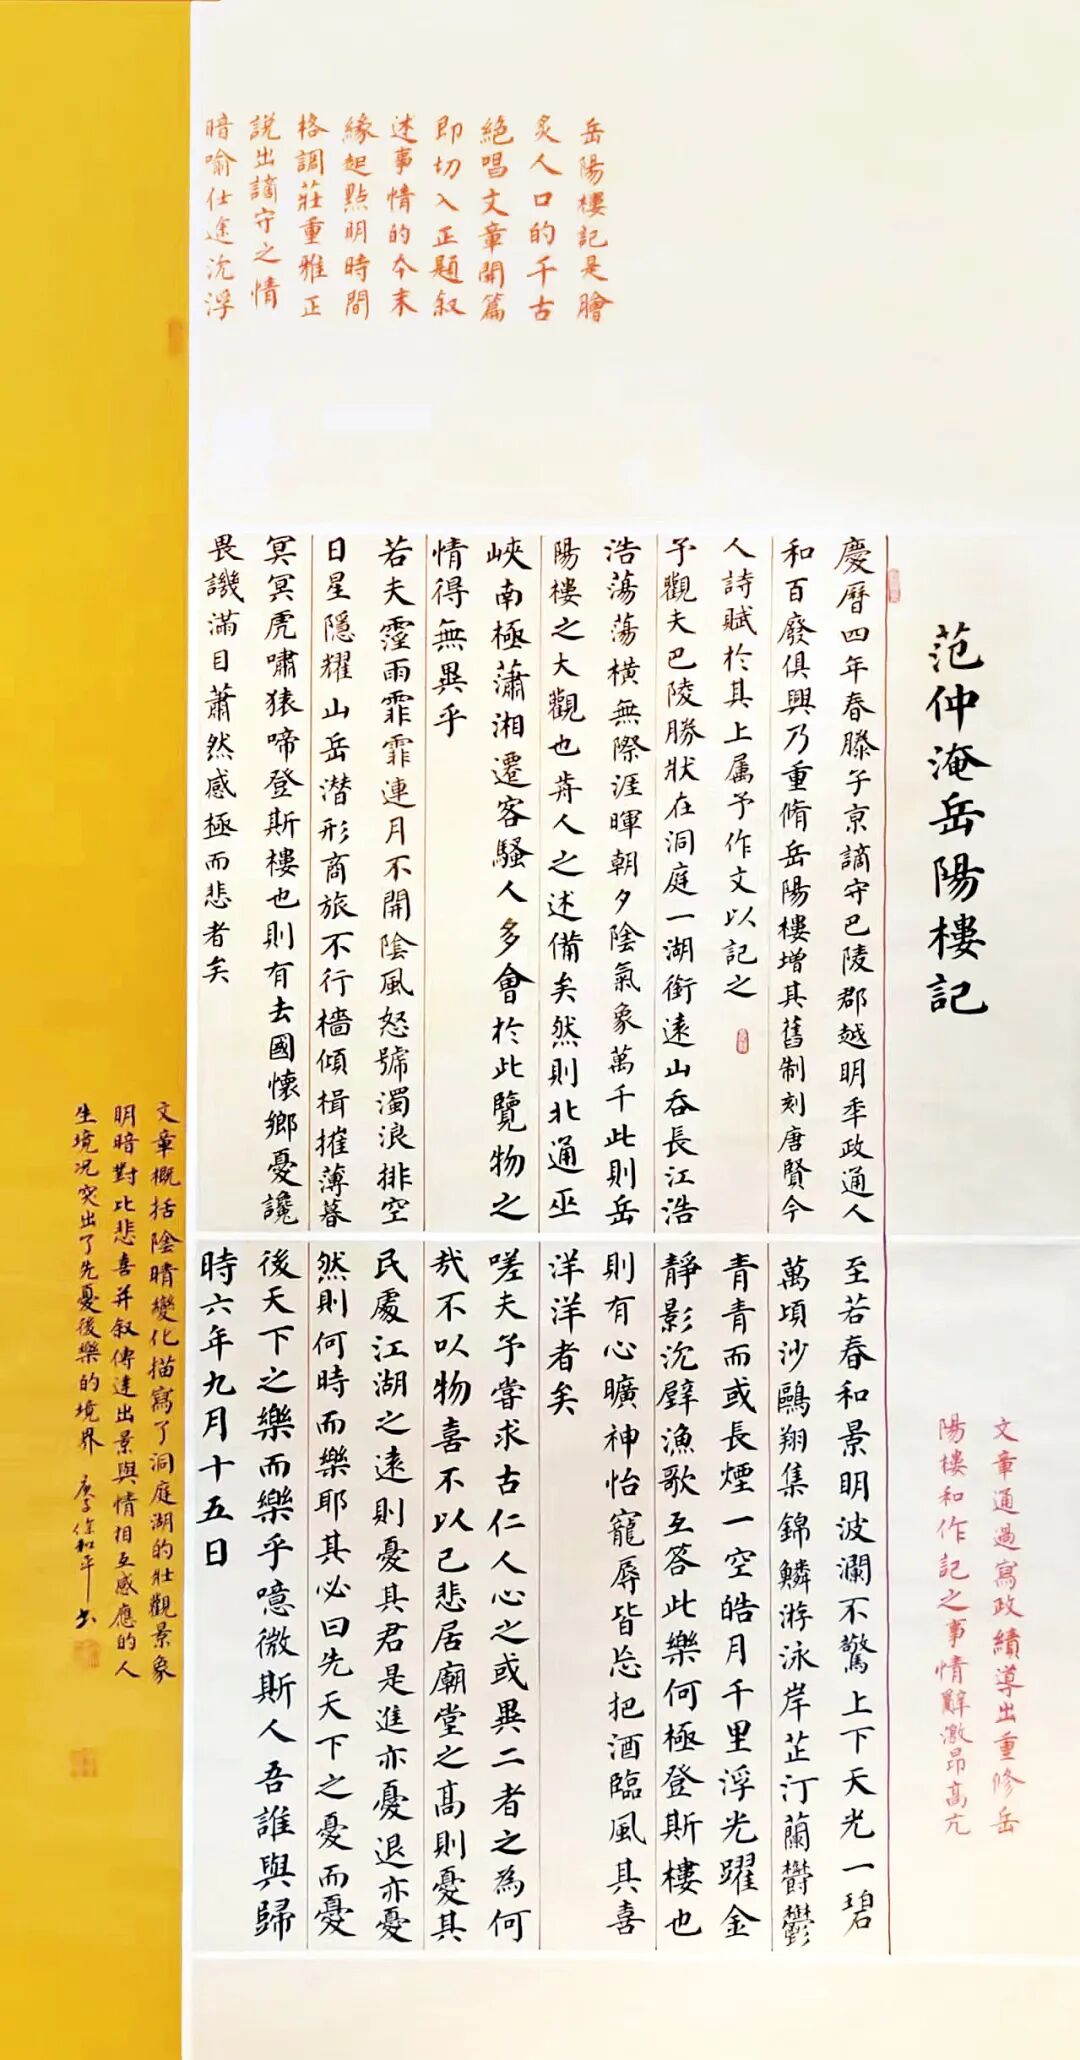 范仲淹岳陽樓記
慶曆四年春滕子京謫守巴陵郡越明年政通人
和百廢俱興乃重脩岳陽樓增其舊制刻唐賢今
人詩賦於其上属予作文以記之
予觀夫巴陵勝狀在洞庭一湖銜遠山吞長江浩
浩蕩蕩橫無際涯暉朝夕陰氣象萬千此則岳
陽樓之大觀也前人之述備矣然則北通巫
峽南極瀟湘遷客騷人多會於此覽物之
情得無異乎
若夫霪雨霏霏連月不開陰風怒號濁浪排空
日星隱耀山岳潜形商旅不行檣傾楫摧薄暮
冥冥虎嘯猿啼登斯樓也則有去國懷鄉憂讒
畏譏滿目蕭然感極而悲者矣
至若春和景明波瀾不驚上下天光一碧
萬頃沙鷗翔集錦鱗游泳岸芷汀蘭欝鬱
青青而或長煙一空皓月千里浮光躍金
靜影沉璧漁歌互答此樂何極登斯樓也
則有心曠神怡寵辱皆忘把酒臨風其喜
洋洋者矣
嗟夫予嘗求古仁人心之或異二者之為何
哉不以物喜不以己悲居廟堂之高則憂其
民處江湖之遠則憂其君是進亦憂退亦憂
然則何時而樂耶其必曰先天下之憂而憂
後天下之樂而樂乎噫微斯人吾誰與歸
時六年九月十五日
岳陽樓記是膾
炙人口的千古
絕唱文章開篇
即切入正題叙
述事情的本末
緣起點明時間
格調莊重雅正
說出謫守之情
暗喻仕途沉浮
文章通過寫政績導出重修岳
陽樓和作記之事情辭激昂高亢
文章概括陰晴變化描寫了洞庭湖的壯觀景象
明暗對比悲喜并叙傳達出景與情相互感應的人
生境况突出了先憂後樂的境界 庚子徐和平書